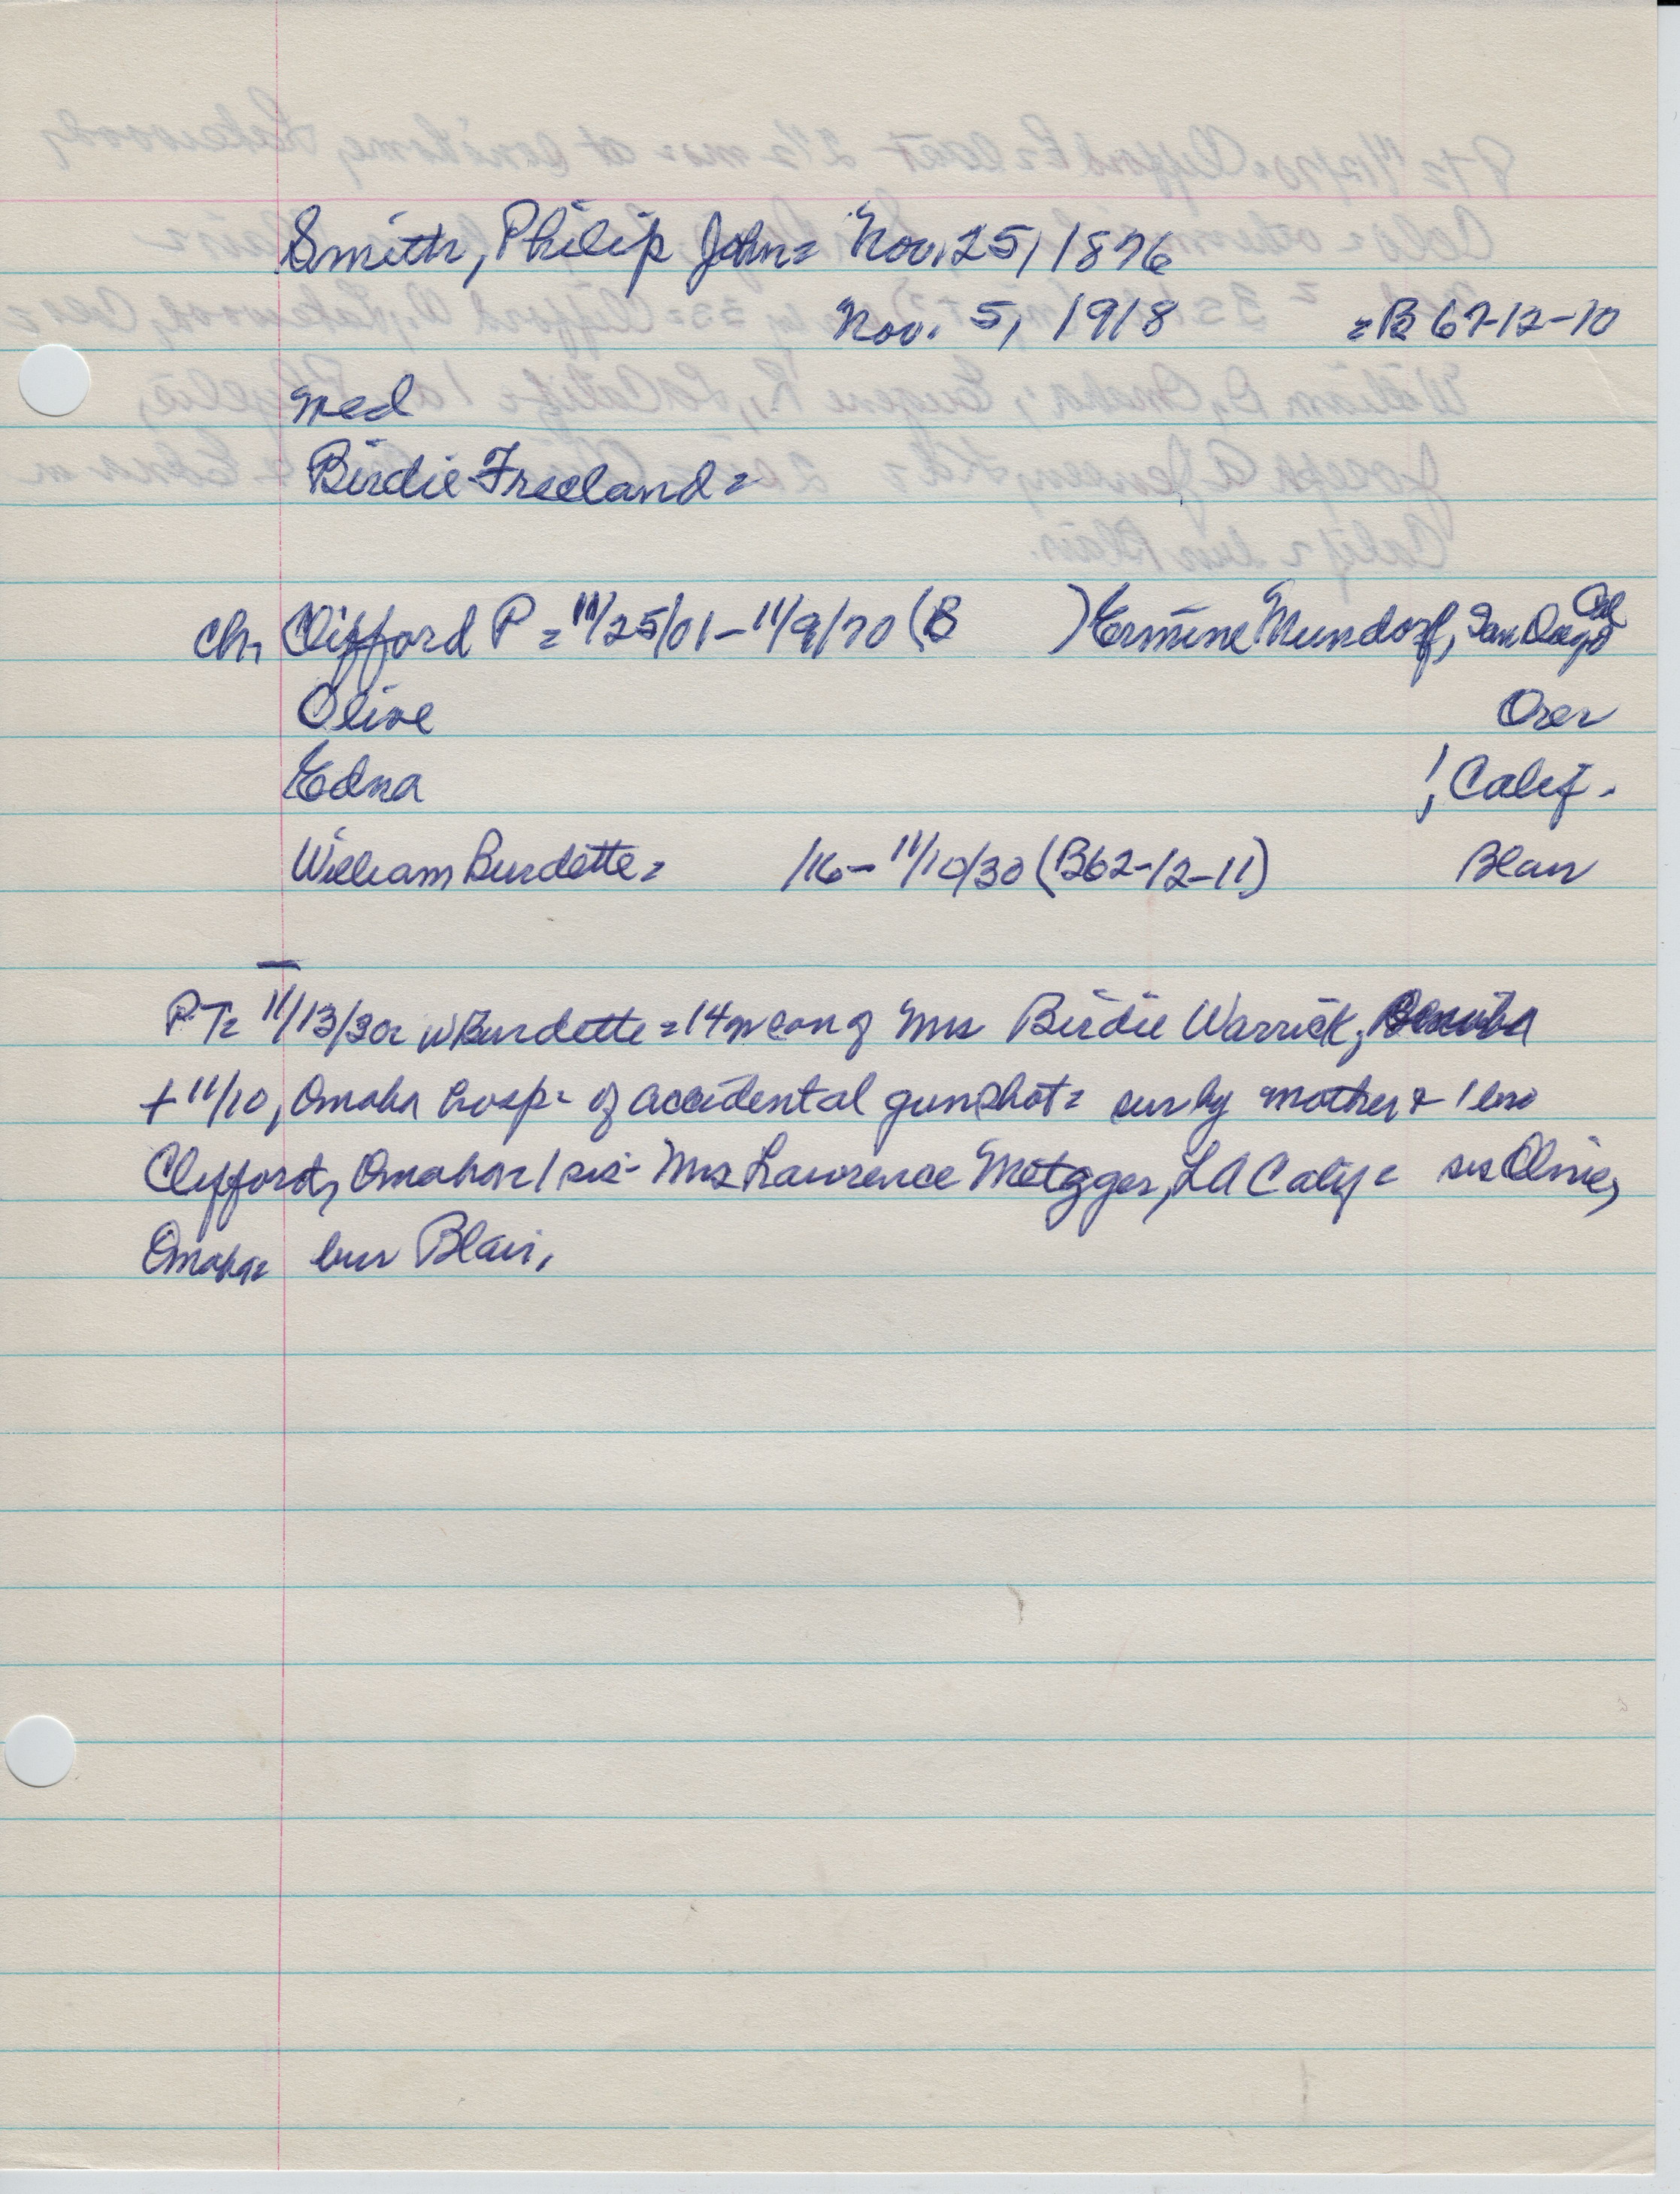 Smith, Philip John = Nov. 25, 1876
Nov. 5, 1918 = B 62-12-10
med
Birdie Freeland =
ch, Clifford P = 11/25/01 - 11/9/70 (B ) Ermine Mundorf, San Diego Cal
Olive Orer
Edna , Calif.
William Burdette = /16 - 11/10/30 (B62-12-11) Blair
PT = 11/13/30 = W Burdette = 14 son of Mrs Birdie Warrick,
+ 11/10, Omaha hosp - of accidental gunshot = sur by mother & 1 bro
Clifford, Omaha = 1 sis - Mrs Lawrence Metzger, LA Calif = sis Olive,
Omaha = bur Blair,